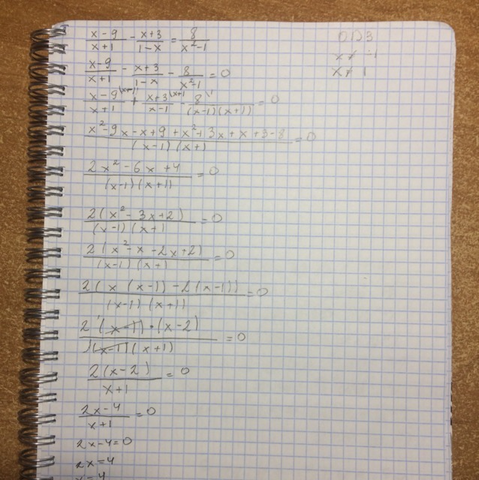 (x-9)/(x+1) - (x+3)/(1-x) = 8/(x²-1)
ОДЗ
x ≠ -1
x ≠ 1
(x-9)/(x+1) - (x+3)/(1-x) - 8/(x²-1) = 0
(x-9)/(x+1) + (x+3)/(x-1) - 8/((x-1)(x+1)) = 0
(x²-9x-x+9+x²+3x+x+3-8)/((x-1)(x+1)) = 0
(2x²-6x+4)/((x-1)(x+1)) = 0
2(x²-3x+2)/((x-1)(x+1)) = 0
2(x²-x-2x+2)/((x-1)(x+1)) = 0
2(x(x-1)-2(x-1))/((x-1)(x+1)) = 0
2(x-1)·(x-2)/((x-1)(x+1)) = 0
2(x-2)/(x+1) = 0
(2x-4)/(x+1) = 0
2x-4=0
2x=4